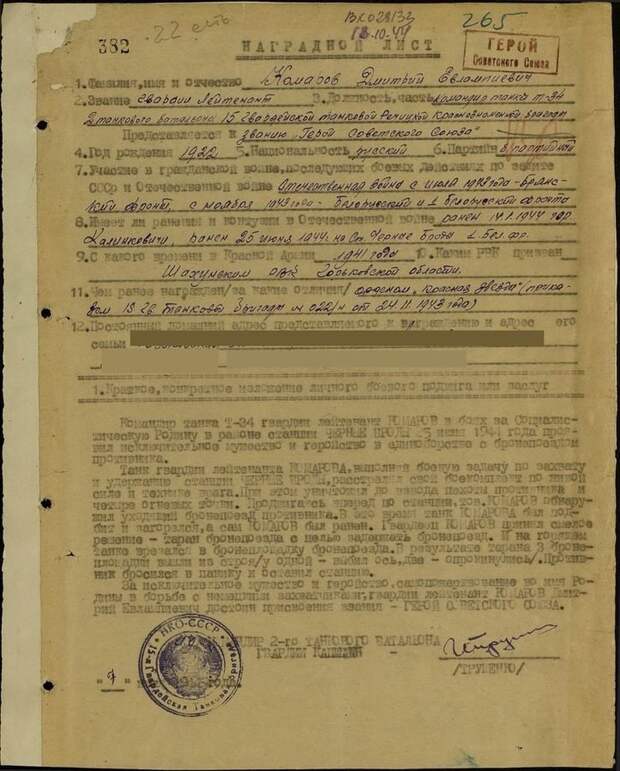 22 есть
ВК028133
13.10.44
265
382
НАГРАДНОЙ ЛИСТ
ГЕРОЙ
Советского Союза
1. Фамилия, имя и отчество Комаров Дмитрий Евлампиевич
2. Звание гвардии лейтенант 3. Должность, часть командир танка Т-34
2 танкового батальона 15 гвардейской танковой Речицкой Краснознаменной бригады
Представляется к званию "Герой Советского Союза"
4. Год рождения 1922 5. Национальность русский 6. Партийн
7. Участие в гражданской войне, последующих боевых действиях по защите
СССР и Отечественной войне Отечественная война с июля 1943 года - Брян-
ский фронт, с ноября 1943 года - Белорусский и 1 Белорусский фронта
8. Имеет ли ранения и контузии в Отечественной войне ранен 14.1.1944 гор
Калинковичи, ранен 25 июня 1944 г. на ст. Черные Броды 1. Бел фр.
9. С какого времени в Красной Армии 1941 года 10. Каким РВК призван
Шахунским РВК Горьковской области.
11. Чем ранее награжден /за какие отличия/ орденом "Красная Звезда" (прика-
зом 15 Гв танковой бригады № 022/н от 24.11.1943 года)
12. Постоянный домашний адрес представляемого к награждению и адрес его
семьи
1. Краткое, конкретное изложение личного боевого подвига или заслуг
Командир танка Т-34 гвардии лейтенант КОМАРОВ в боях за Социалис-
тическую Родину в районе станции ЧЕРНЫЕ БРОДЫ июня 1944 года проя-
вил исключительное мужество и геройство в единоборстве с бронепоездом
противника.
Танк гвардии лейтенанта КОМАРОВА, выполняя боевую задачу по захвату
и удержанию станции ЧЕРНЫЕ БРОДЫ, расстрелял свой боекомплект по живой
силе и технике врага. При этом уничтожил до взвода пехоты противника и
четыре огневых точки. Продвигаясь вперед по станции, тов. КОМАРОВ обнару-
жил уходящий бронепоезд противника. В это время танк КОМАРОВА был под-
бит и загорелся, а сам КОМАРОВ был ранен. Гвардеец КОМАРОВ принял смелое
решение - таран бронепоезда с целью задержать бронепоезд. И на горящем
танке врезался в бронеплощадку бронепоезда. В результате тарана 3 броне-
площадки вышли из строя /у одной - выбил ось, две - опрокинулись/. Против-
ник бросился в панику и оставил станцию.
За исключительное мужество и геройство, самопожертвование во имя Ро-
дины в борьбе с немецкими захватчиками, гвардии лейтенант КОМАРОВ Дмит-
рий Евлампиевич достоин присвоения звания - ГЕРОЙ СОВЕТСКОГО СОЮЗА.
КОМАНДИР 2-го ТАНКОВОГО БАТАЛЬОНА
ГВАРДИИ КАПИТАН
/ТРУЦЕНКО/
НКО-СССР
года